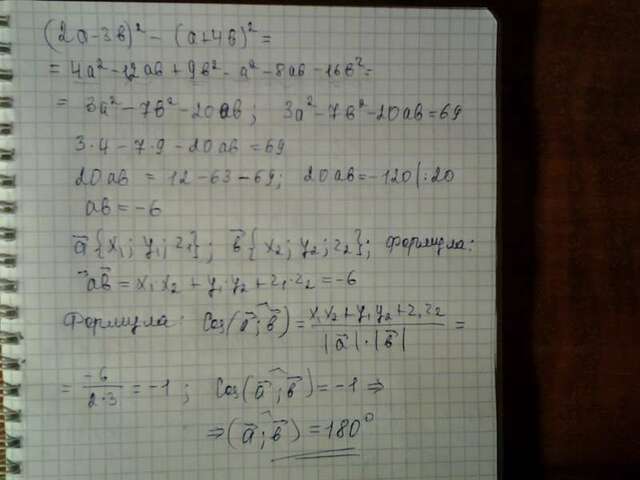 (2a-3b)² - (a+4b)² =
= 4a² - 12ab + 9b² - a² - 8ab - 16b² =
= 3a² - 7b² - 20ab ; 3a² - 7b² - 20ab = 69
3·4 - 7·9 - 20ab = 69
20ab = 12 - 63 - 69 ; 20ab = -120 | : 20
ab = -6
a⃗ {x₁; y₁; z₁} ; b⃗ {x₂; y₂; z₂} ; формула:
a⃗b⃗ = x₁·x₂ + y₁·y₂ + z₁·z₂ = -6
Формула: Cos(a⃗ ; b⃗) = x₁x₂ + y₁y₂ + z₁z₂ / |a⃗|·|b⃗| =
= -6 / 2·3 = -1 ; Cos(a⃗ ; b⃗) = -1 ⇒
⇒ (a⃗ ; b⃗) = 180°